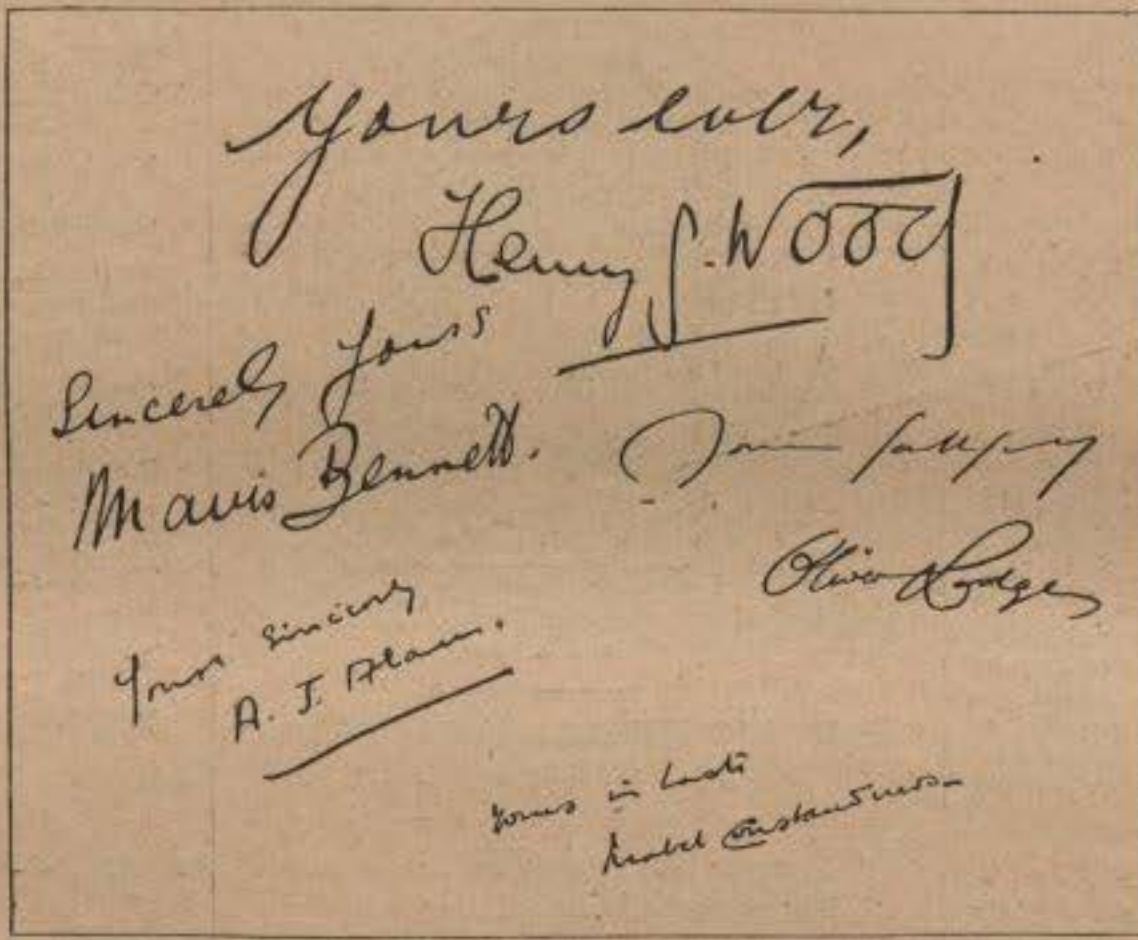 Yours ever,
Henry J. Wood
Sincerely Yours
Mavis Bennett.
Oliver Lodge
Yours sincerely
A. J. Alan.
Yours in haste
Mabel Constanduros